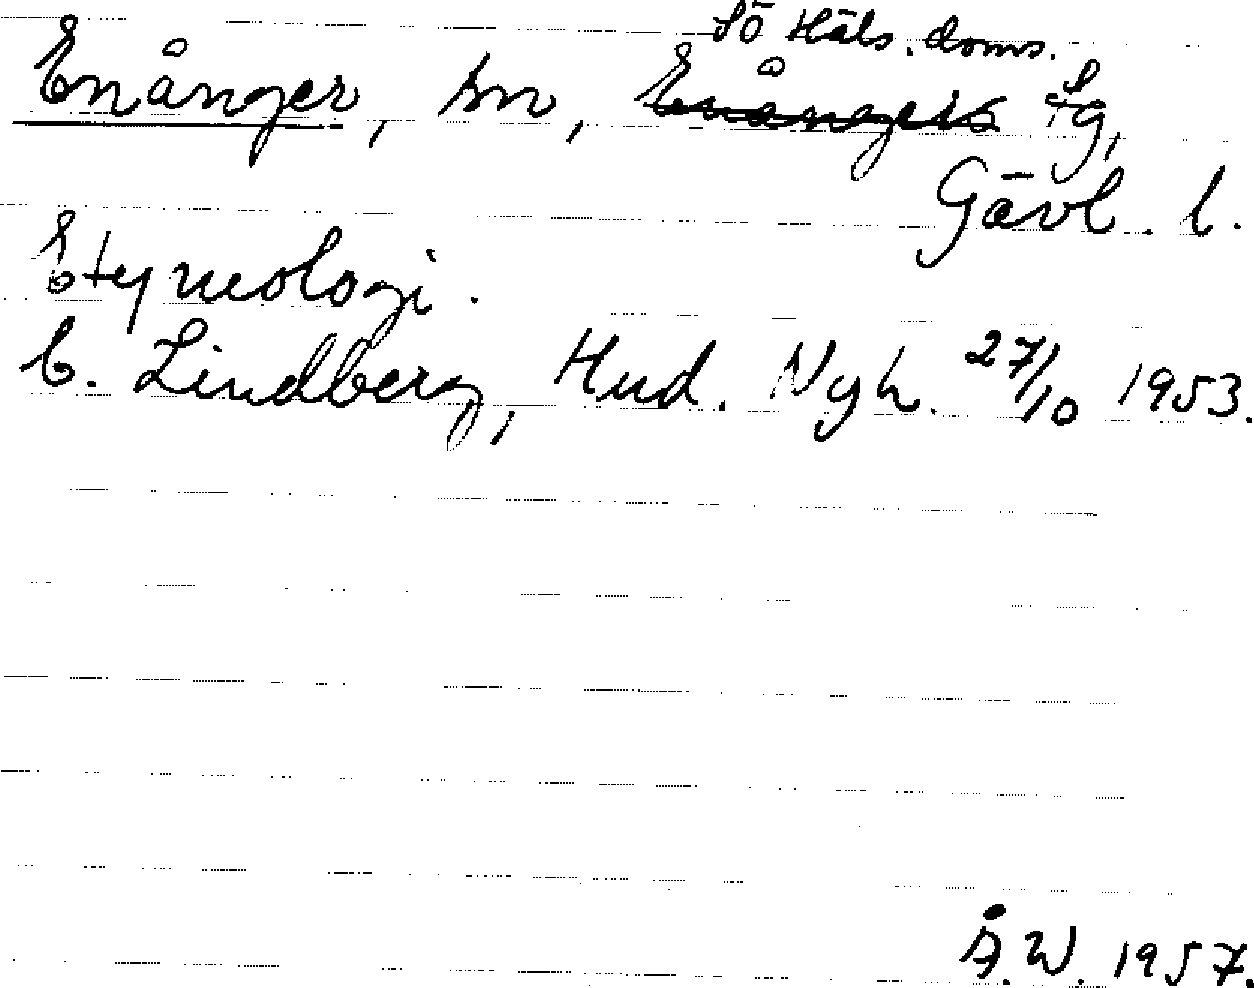 Sö Häls. doms.
Enånger, sn, Enångers tg,
Gävl. l.
Etymologi.
C. Lindberg, Hud. Nyh. 27/10 1953.
Å.W. 1957.